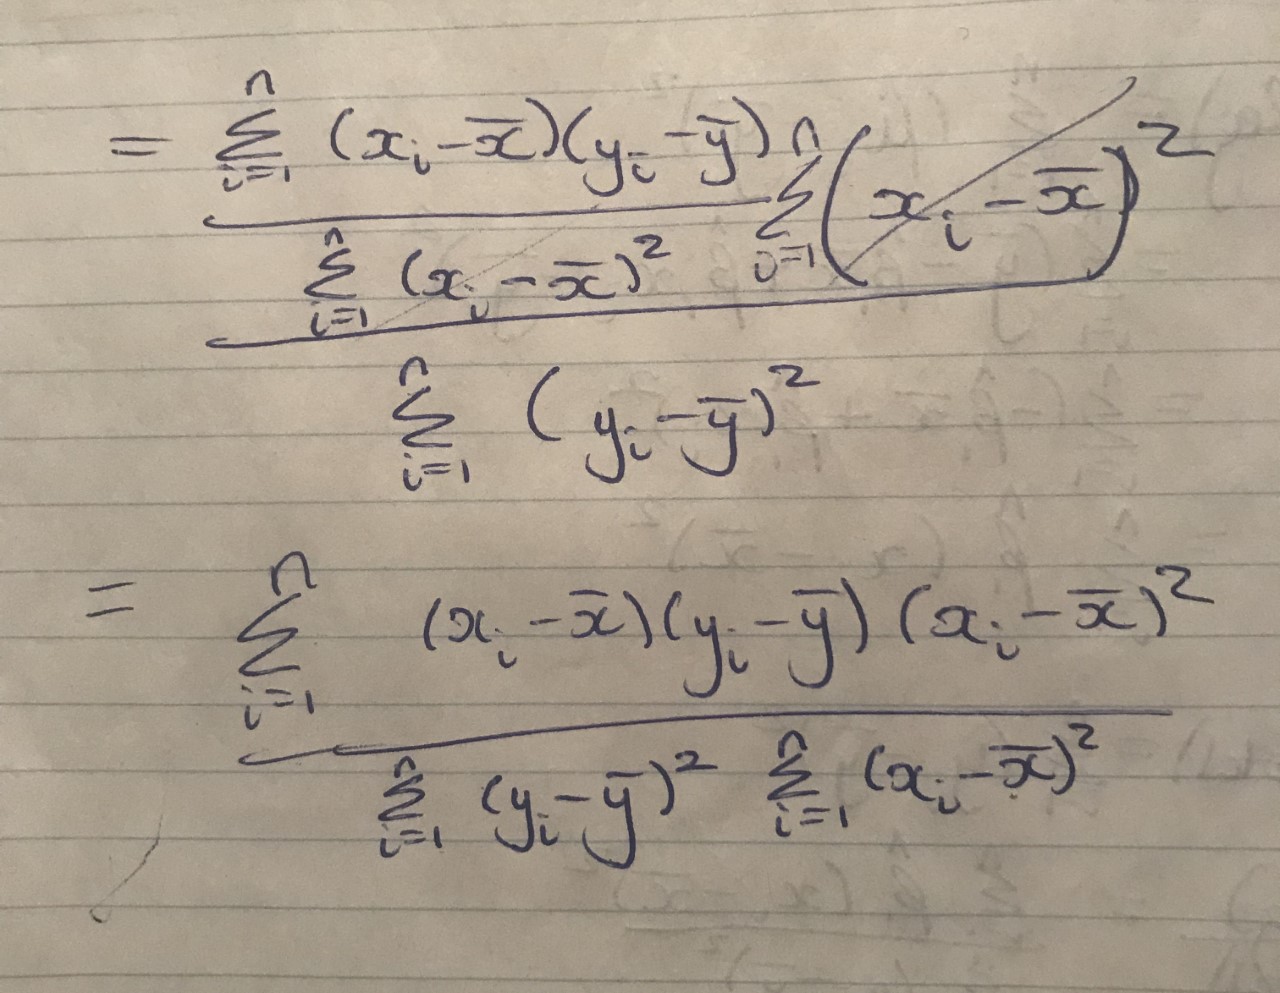 = \frac{\frac{\sum_{i=1}^{n} (x_i - \overline{x})(y_i - \overline{y})}{\sum_{i=1}^{n} (x_i - \overline{x})^2} \sum_{i=1}^{n} (x_i - \overline{x})^2}{\sum_{i=1}^{n} (y_i - \overline{y})^2}
= \frac{\sum_{i=1}^{n} (x_i - \overline{x})(y_i - \overline{y})(x_i - \overline{x})^2}{\sum_{i=1}^{n} (y_i - \overline{y})^2 \sum_{i=1}^{n} (x_i - \overline{x})^2}